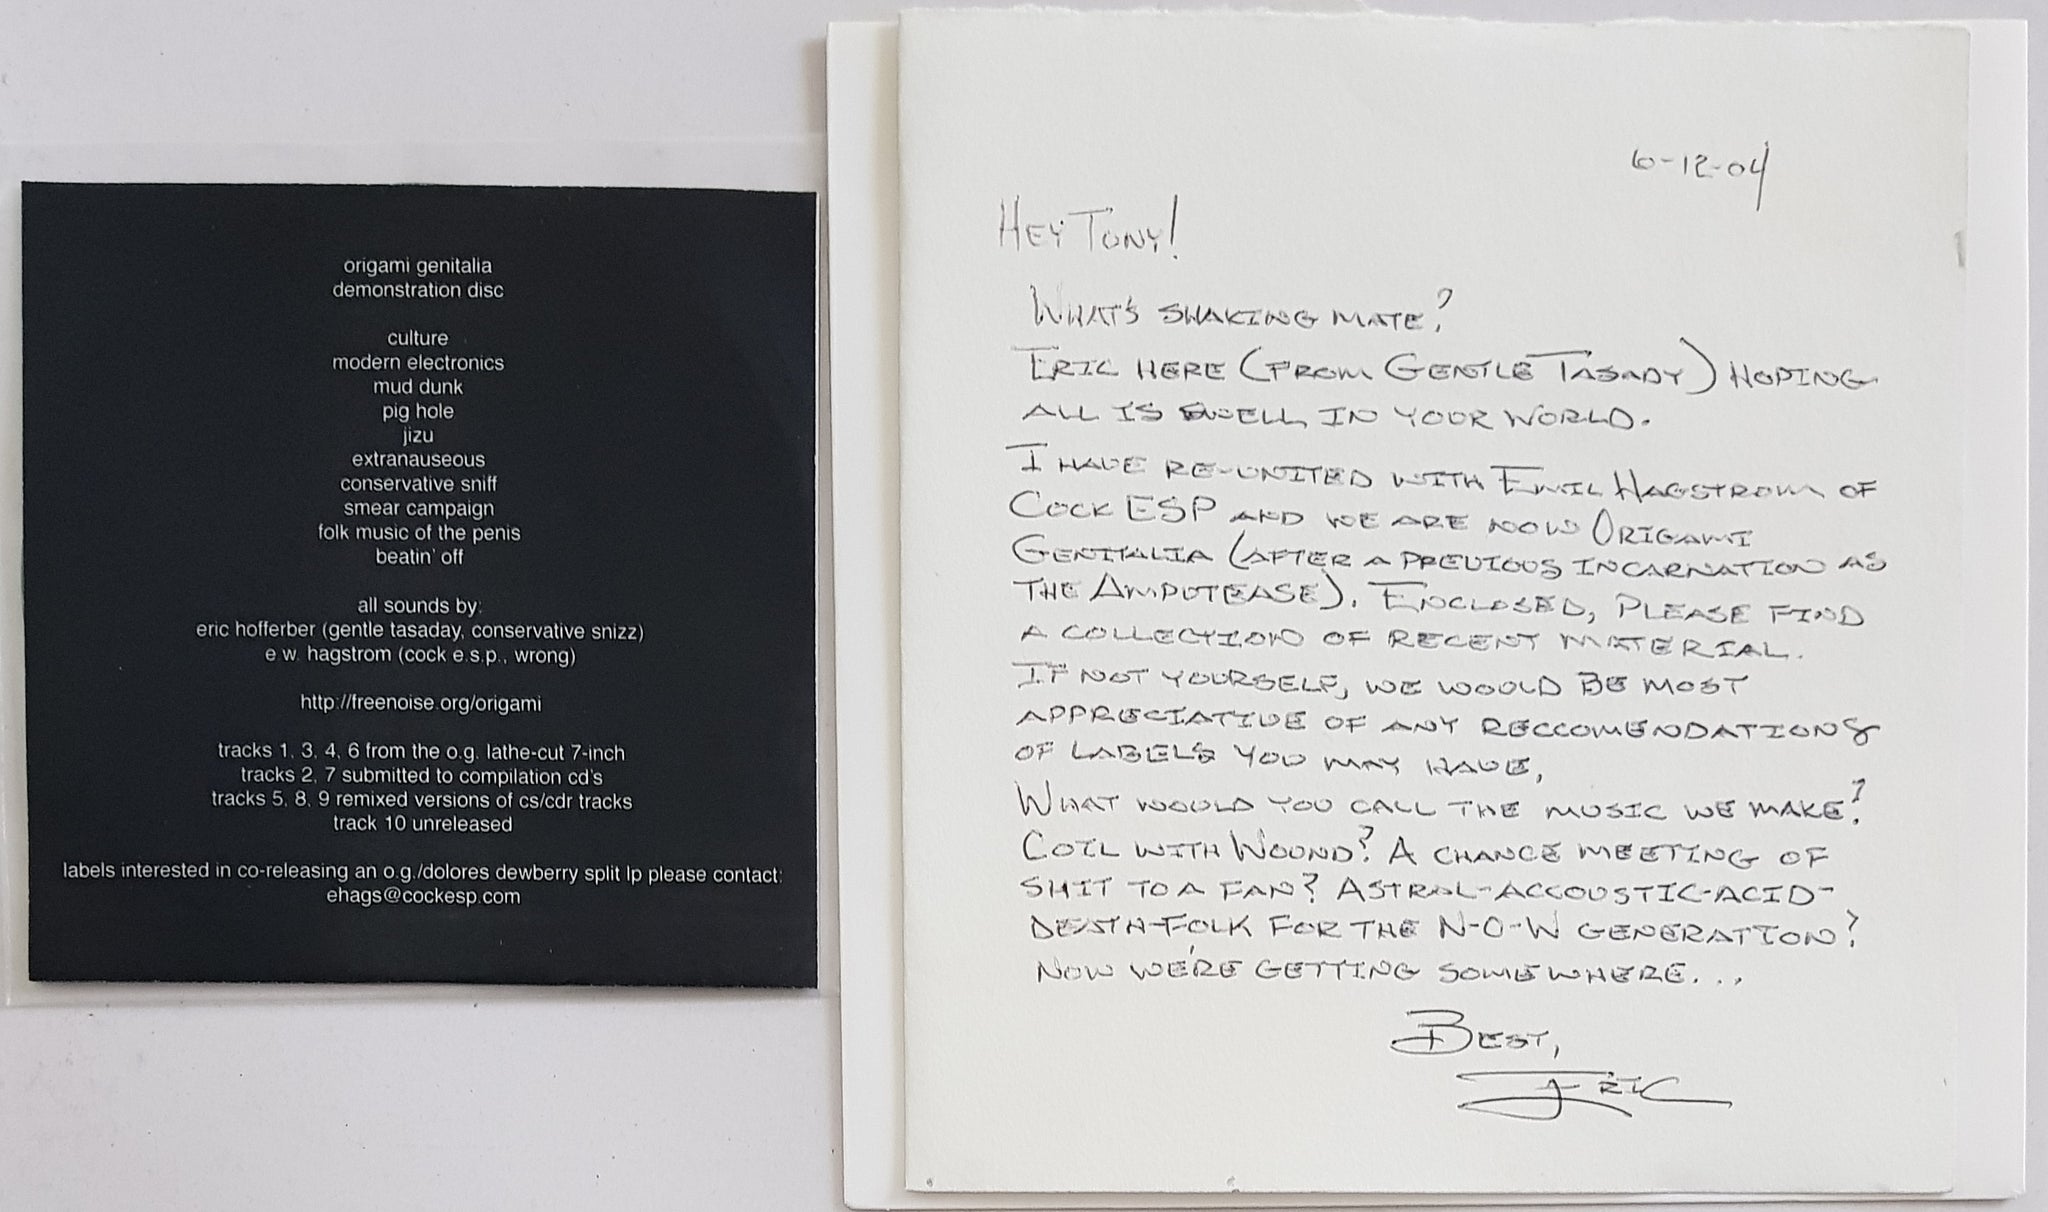 origami genitalia
demonstration disc
culture
modern electronics
mud dunk
pig hole
jizu
extranauseous
conservative sniff
smear campaign
folk music of the penis
beatin' off
all sounds by:
eric hofferber (gentle tasaday, conservative snizz)
e.w. hagstrom (cock e.s.p., wrong)
http://freenoise.org/origami
tracks 1, 3, 4, 6 from the o.g. lathe-cut 7-inch
tracks 2, 7 submitted to compilation cd's
tracks 5, 8, 9 remixed versions of cs/cdr tracks
track 10 unreleased
labels interested in co-releasing an o.g./dolores dewberry split lp please contact:
ehags@cockesp.com
6-12-04
HEY TONY!
WHAT'S SHAKING MATE?
ERIC HERE (FROM GENTLE TASADY) HOPING
ALL IS SWELL IN YOUR WORLD.
I HAVE RE-UNITED WITH EMIL HAGSTROM OF
COCK ESP AND WE ARE NOW ORIGAMI
GENITALIA (AFTER A PREVIOUS INCARNATION AS
THE AMPUTEASE). ENCLOSED, PLEASE FIND
A COLLECTION OF RECENT MATERIAL.
IF NOT YOURSELF, WE WOULD BE MOST
APPRECIATIVE OF ANY RECCOMENDATIONS
OF LABELS YOU MAY HAVE,
WHAT WOULD YOU CALL THE MUSIC WE MAKE?
COIL WITH WOUND? A CHANCE MEETING OF
SHIT TO A FAN? ASTRAL-ACCOUSTIC-ACID-
DEATH-FOLK FOR THE N-O-W GENERATION?
NOW WE'RE GETTING SOMEWHERE...
BEST,
ERIC